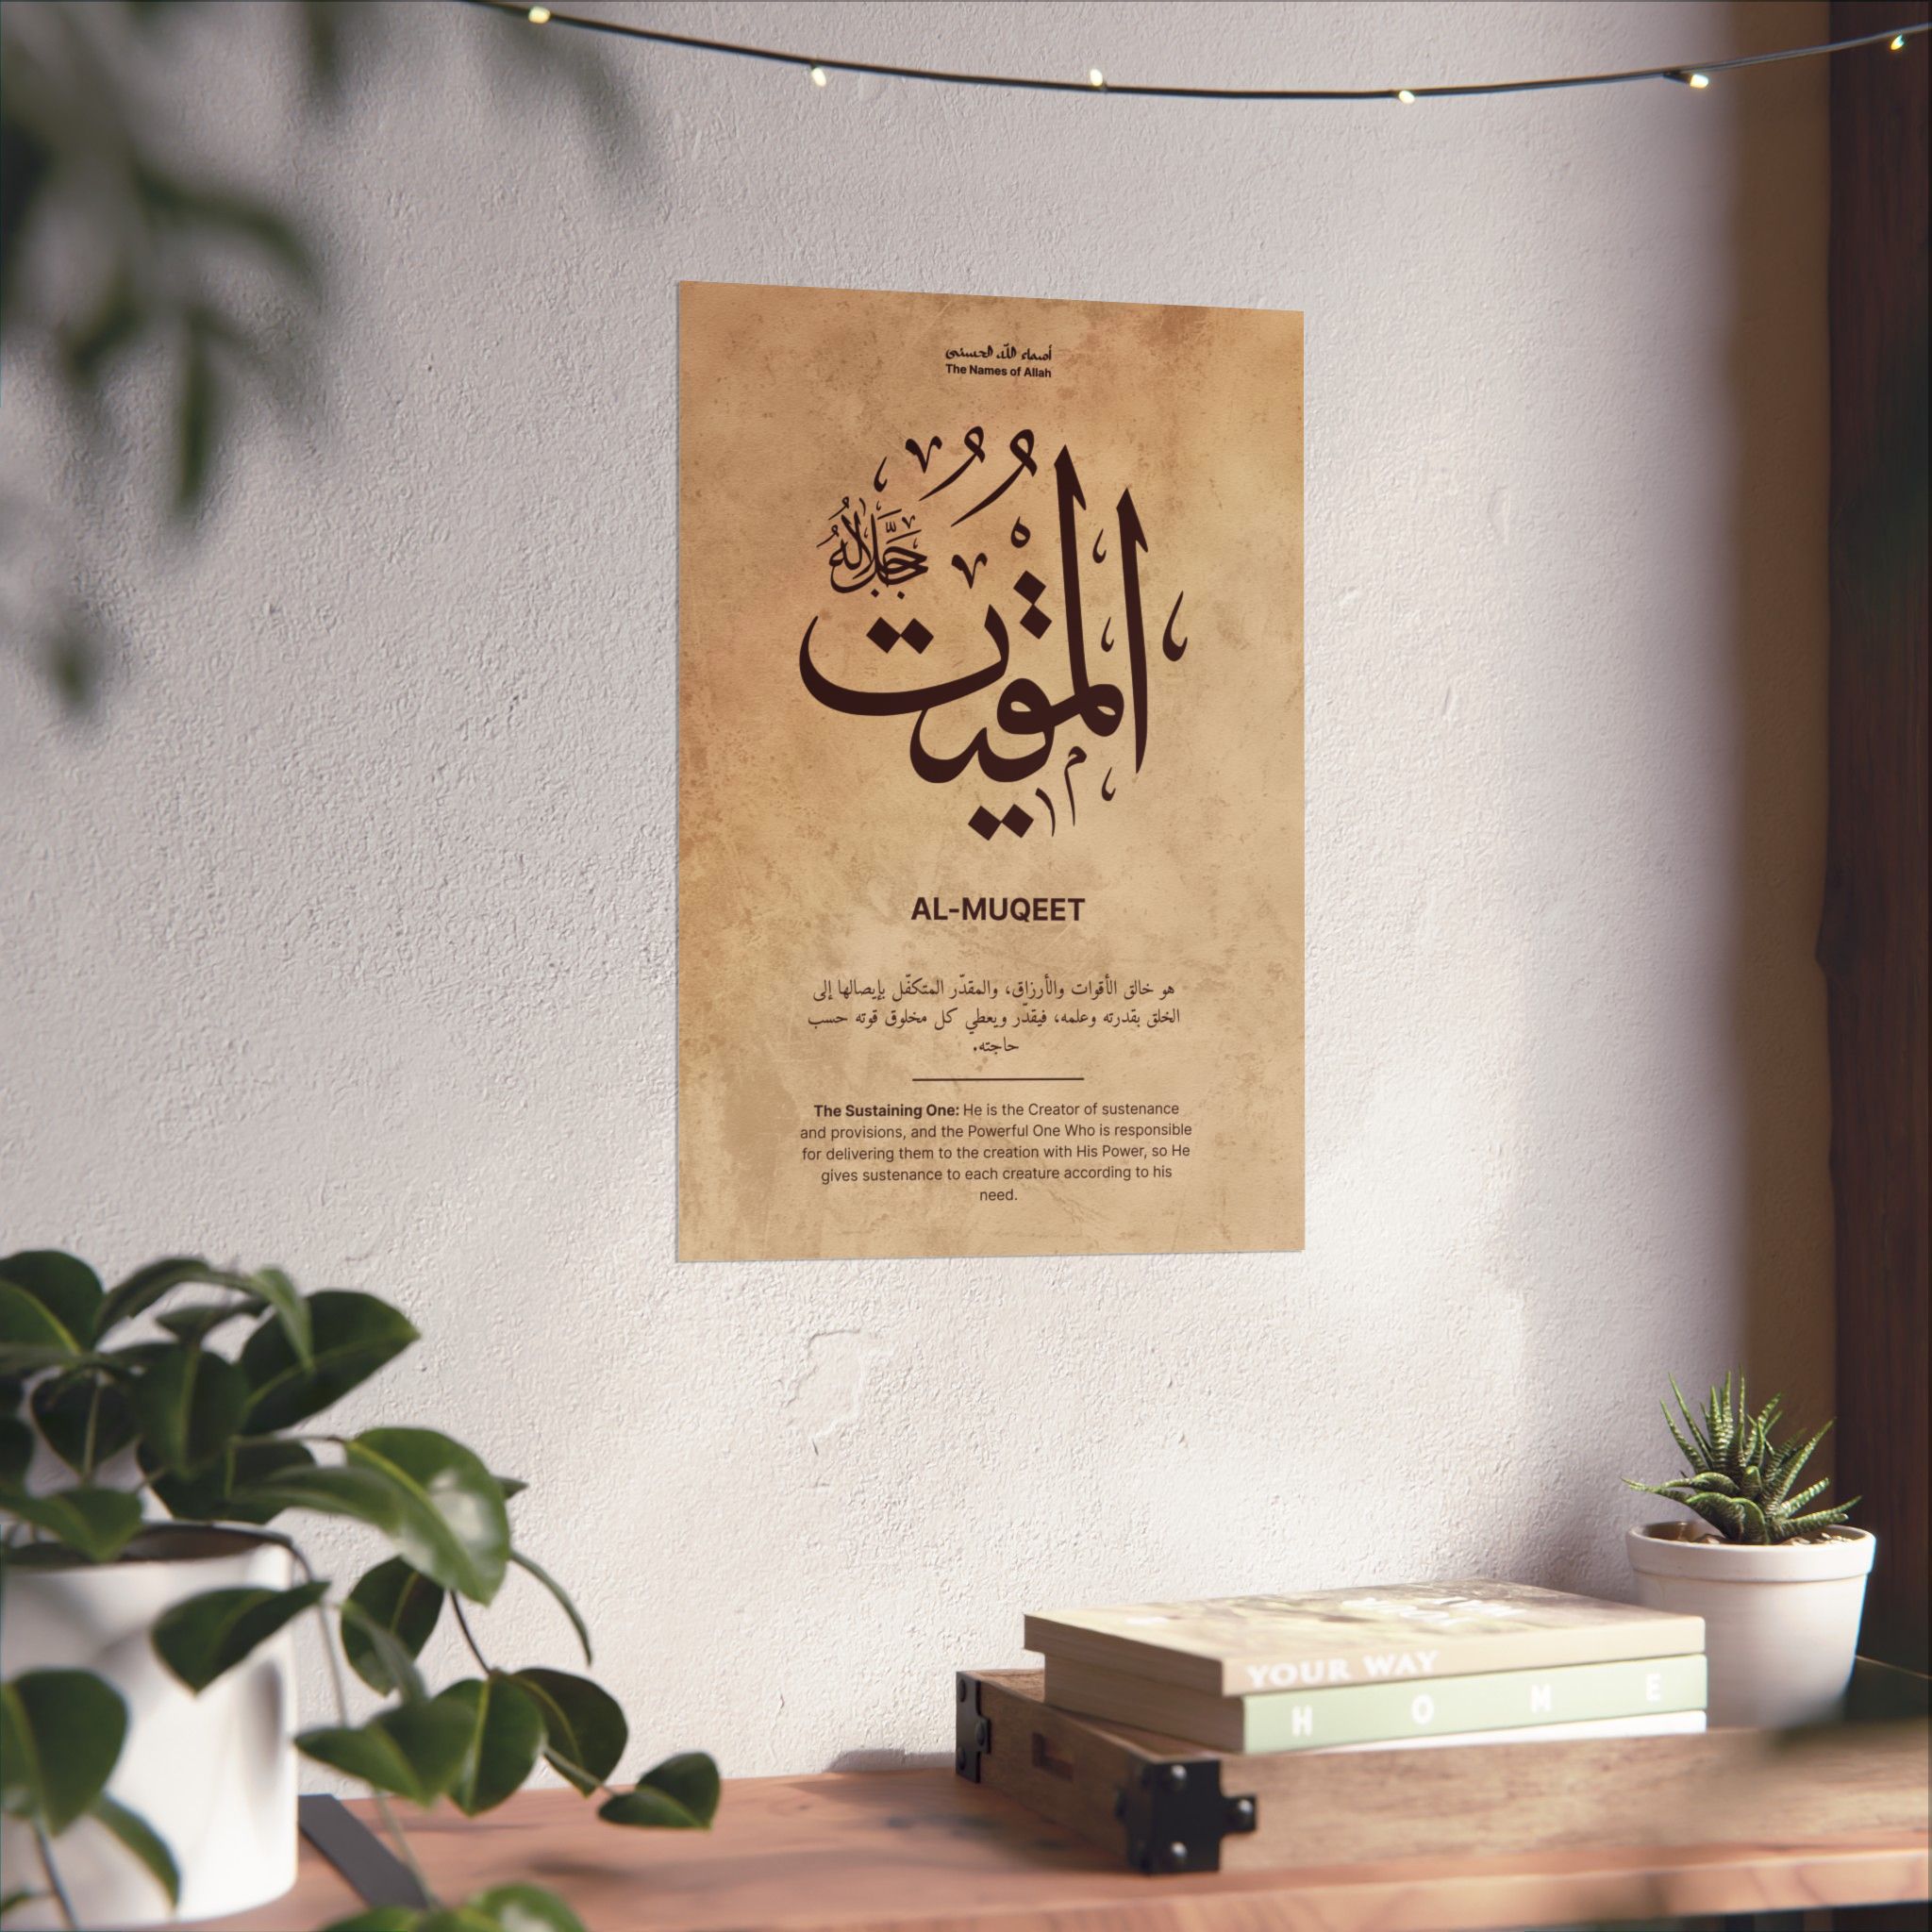 أسماء الله الحسنى
The Names of Allah
المُقِيتُ
جَلَّ جَلَالُهُ
AL-MUQEET
هو خالق الأقوات والأرزاق، والمقدّر المتكفّل بإيصالها إلى
الخلق بقدرته وعلمه، فيقدّر ويعطي كل مخلوق قوته حسب
حاجته.
The Sustaining One: He is the Creator of sustenance
and provisions, and the Powerful One Who is responsible
for delivering them to the creation with His Power, so He
gives sustenance to each creature according to his
need.
YOUR WAY
HOME